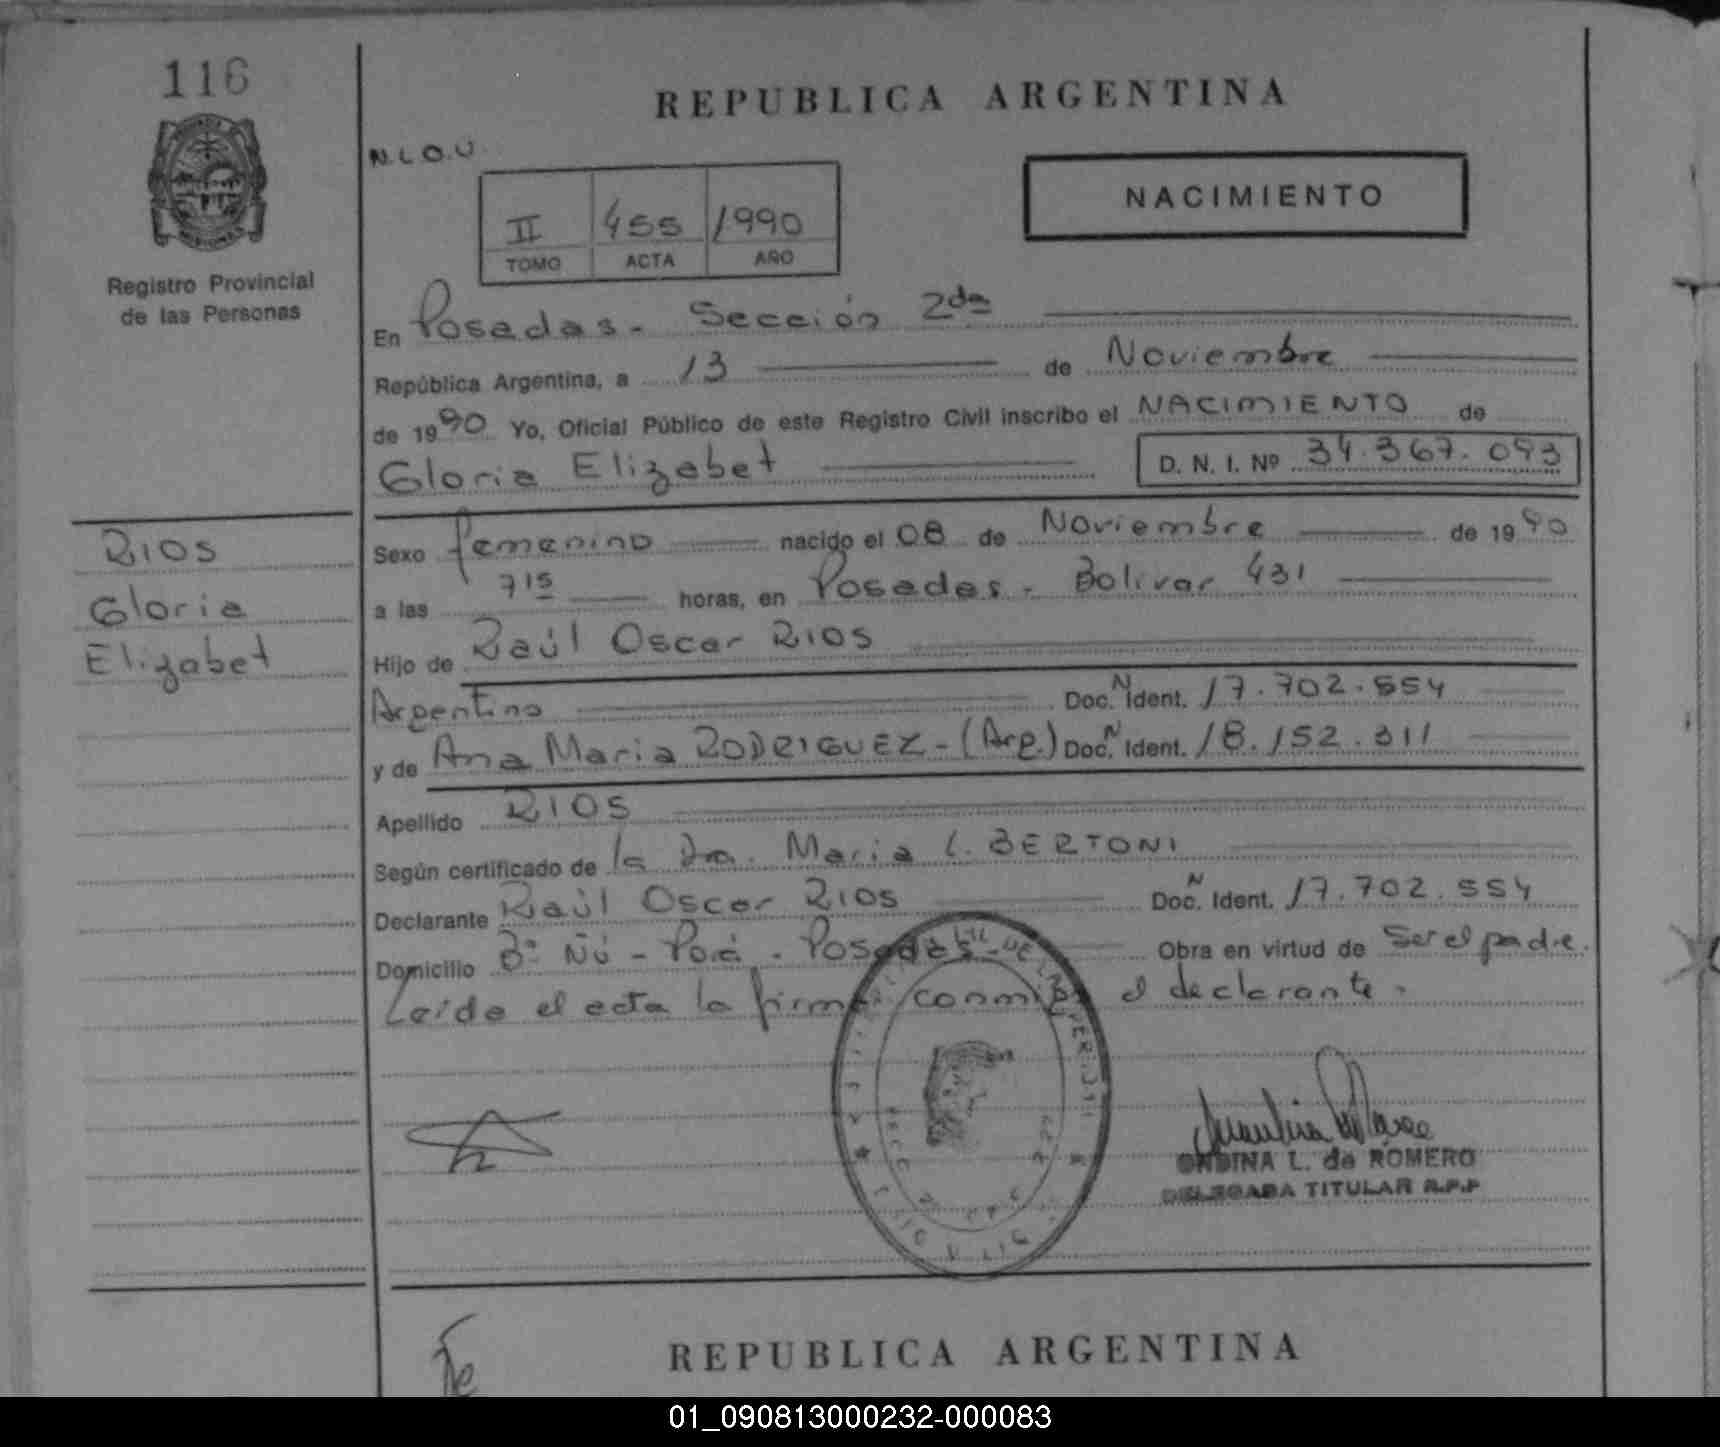 116
REPUBLICA ARGENTINA
N.L.O.U.
NACIMIENTO
II 455 1990
TOMO ACTA AÑO
Registro Provincial
de las Personas
En Posadas - Sección 2da
República Argentina, a 13 de Noviembre
de 1990 Yo, Oficial Público de este Registro Civil inscribo el NACIMIENTO de
Gloria Elizabet D. N. I. Nº 34.367.093
RIOS
Gloria
Elizabet
Sexo femenino nacido el 08 de Noviembre de 1990
a las 7 15 horas, en Posadas - Bolivar 431
Hijo de Raúl Oscar RIOS
Argentino Doc. N Ident. 17.702.554
y de Ana Maria RODRIGUEZ - (Arg.) Doc. N Ident. 18.152.311
Apellido RIOS
Según certificado de la Dra. Maria L. BERTONI
Declarante Raúl Oscar RIOS Doc. N Ident. 17.702.554
Domicilio Bº Ñú - Porá - Posadas - Obra en virtud de Ser el padre.
Leída el acta la firma conmigo el declarante.
ONDINA L. de ROMERO
DELEGADA TITULAR R.P.P
REPUBLICA ARGENTINA
01_090813000232-000083